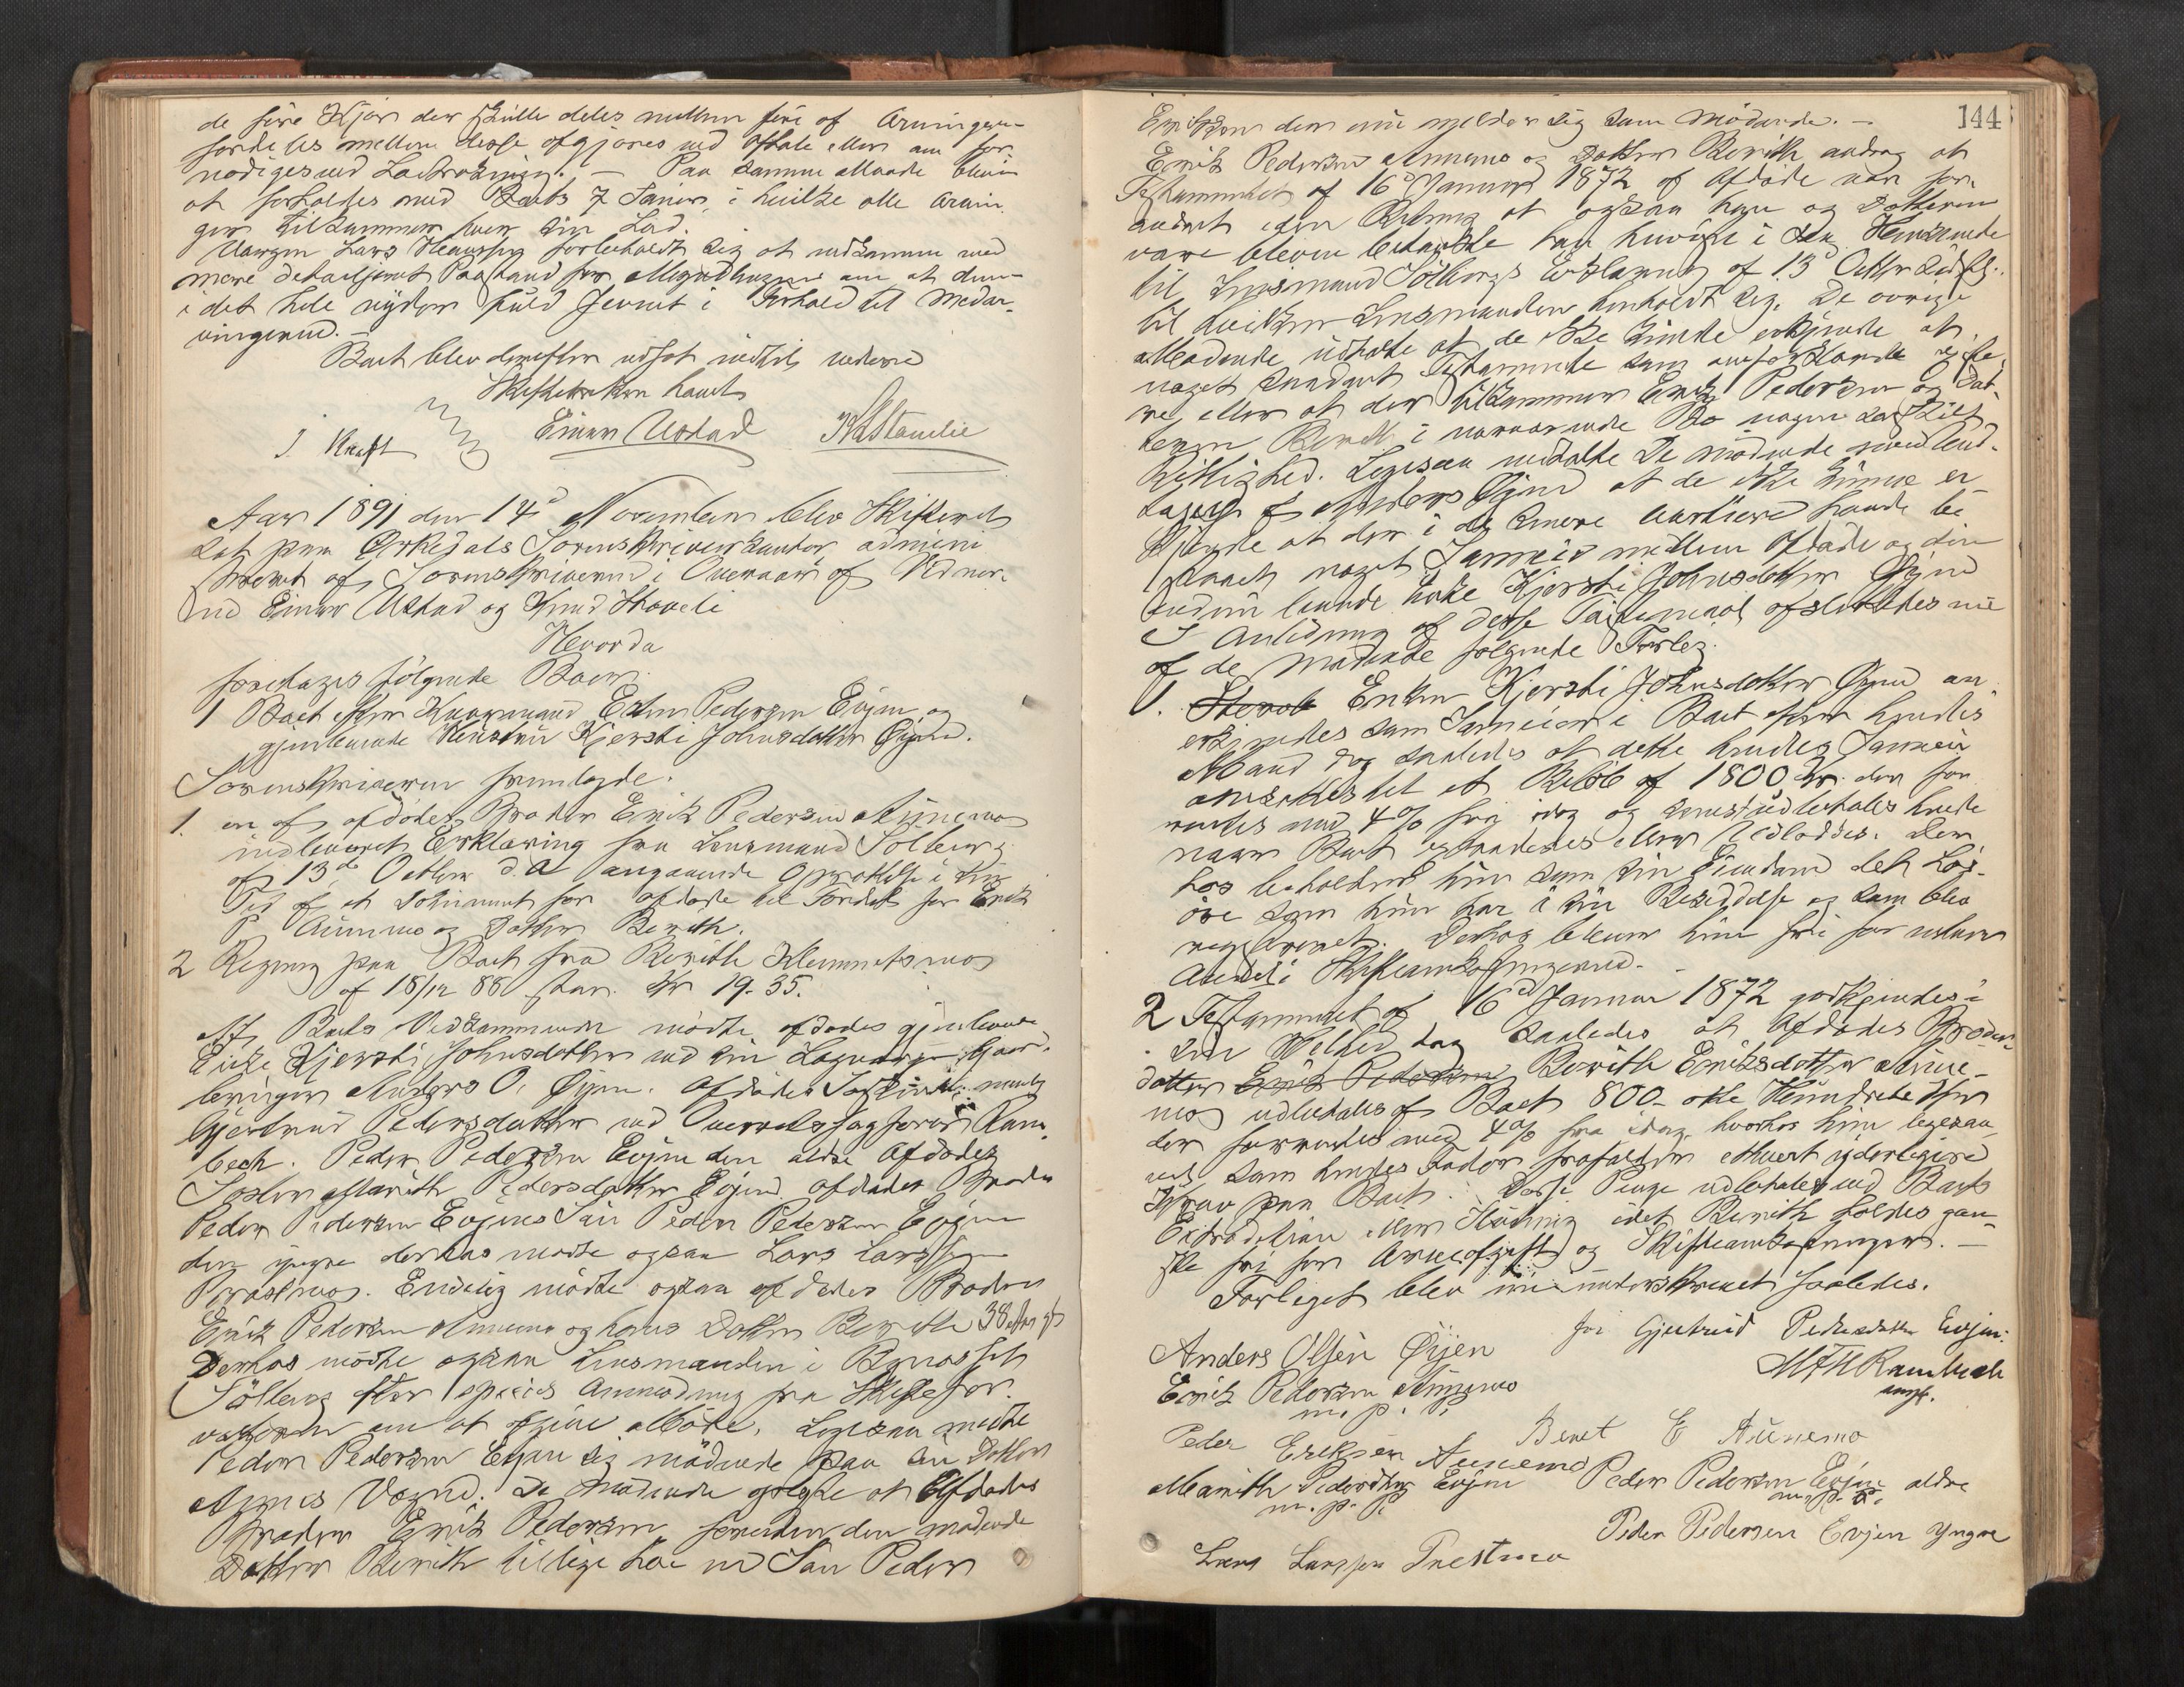 de fire Kjør der skulle deles mellem fire af Arvingerne
fordeles mellem disse afgjøres ved Aftale eller om for-
nødiges ved Lodtrækning. — Paa samme Maade bliver
at forholdes med Boets 7 Sauer, i hvilke alle Arvin-
ger tilkommer hver sin Lod.
Værgen Lars forbeholdt sig at indkomme med
mere detaljeret Paastand for Myndlingerne om at denne
i det hele nyder fuld Jevnet i Forhold til Medar-
vingerne. —
Boet blev derefter udsat indtil videre
Skifteretten hævet
I. Kraft Einar Ustad K Stavelie
Aar 1891 den 14d November blev Skifteret
sat paa Orkedals Sorenskriverkontor admini-
streret af Sorenskriveren i Overvær af Vidner-
ne Einar Ustad og Knud Staveli
Hvorda
foretages følgende Boer:
1 Boet efter Kaarmand Esten Pedersen Evjen og
gjenlevende Hustru Kjersti Johnsdatter Øyen.
Sorenskriveren fremlagde:
1. en af afdødes Broder Erik Pedersen Aunemo
indleveret Erklæring fra Lensmand Solberg
af 13de Octbr d.A. angaaende Oprettelse i sin
Tid af et Dokument for Afdøde til Fordel for Erik
P. Aunmo og Datter Berith.
2 Regning paa Boet fra Berith Klemmetsmo
af 18/12 88 stor Kr 19.35.
Af Boets Vedkommende mødte afdødes gjenlevende
Enke Kjersti Johnsdatter ved sin Lagværge Gaard-
bruger Anders O. Øyen. Afdødes Søskende: nemlig
Gjertrud Pedersdatter ved Overretssagfører Ram-
bech. Peder Pedersen Evjen den ældre Afdødes
Søster Marith Pedersdatter Evjen. afdødes Broder
Peder Pedersen Evjens Søn Peder Pedersen Evjen
den yngre derhos mødte ogsaa Lars Larssen
Præstmo. Endelig mødte ogsaa afdødes Broder
Erik Pedersen Aunemo og hans Datter Berith 38 Aar gl
Derhos mødte ogsaa Lensmanden i Børseskn
Solberg efter speciel Anmodning fra Skiftefor-
valteren om at afgive Møde. Ligesaa mødte
Peder Pedersen Evjen sig mødende paa sin Datter
Agnes Vegne. De Mødende oplyste at Afdødes
Broder Erik Pedersen foruden den mødende
Datter Berith tillige har en Søn Peder
144
Eriksen den nu melder sig som Mødende. —
Erik Pedersen Aunemo og Datter Berith androg at
Testamentet af 16d Januar 1872 af Afdøde var for-
andret i den Retning at ogsaa han og Datteren
vare bleven betænkte han henviste i saa Henseende
til Lensmand Solbergs Erklæring af 13d Octbr sidstl.
til hvilken Lensmanden henholdt sig. De øvrige
Mødende udtalte at de ikke kunde erkjende at
noget saadant Testamente som anførte skulde existe-
re, eller at der tilkommer Erik Pedersen og Dat-
teren Berith i nærværende Bo nogen særskilt
Rettighed. Ligesaa udtalte De mødende med Und-
tagelse af Anders Øyen at de ikke kunne er-
kjende at der i de senere Aartier havde be-
staaet noget Sameie mellem Afdøde og den
endnu levende Enke Kjersti Johnsdatter Øyen
I Anledning af disse Spørgsmaal afsluttedes nu
af de Mødende følgende Forlig:
1. Enken Kjersti Johnsdatter Øyen an-
erkjendes som Sameier i Boet efter hendes
Mand dog saaledes at dette hendes Sameie
ansættes til et Beløb af 1800 Kr. der for-
rentes med 4% fra idag og senest udbetales hende
naar Boet extraderes eller udloddes. Der-
hos beholder hun som sin Eiendom det Løs-
øre som hun har i sin Besiddelse og som blev
registreret. Derhos bliver hun fri for videre
Andel i Skifteomkostningerne. —
2 Testamentet af 16d Januar 1872 godkjendes i
sin Helhed dog saaledes at Afdødes Broder-
datter Erik Pedersens Berith Eriksdatter Aune-
mo udbetales af Boet 800 - otte Hundrede Kr
der forrentes med 4% fra idag, hvorhos hun ligesaa-
vel som hendes Fader frafalder ethvert yderligere
Krav paa Boet. Disse Penge udbetales ved Boets
Extradition eller Slutning idet Berith holdes gan-
ske fri for Arveafgift og Skifteomkostninger. —
Forliget blev nu underskrevet saaledes.
Anders Olsen Öijen for Gjertrud Pedersdatter Evjen:
Erik Pedersen Aunemo M Rambech
m. p. P.
Peder Eriksen Aunemo Beret E Aunemo
Marith Pedersdtr Evjen Peder Pedersen Evjen ældre
m. p. P. m. p. P.
Peder Pedersen Evjen yngre
Lars Larssen Prestmo